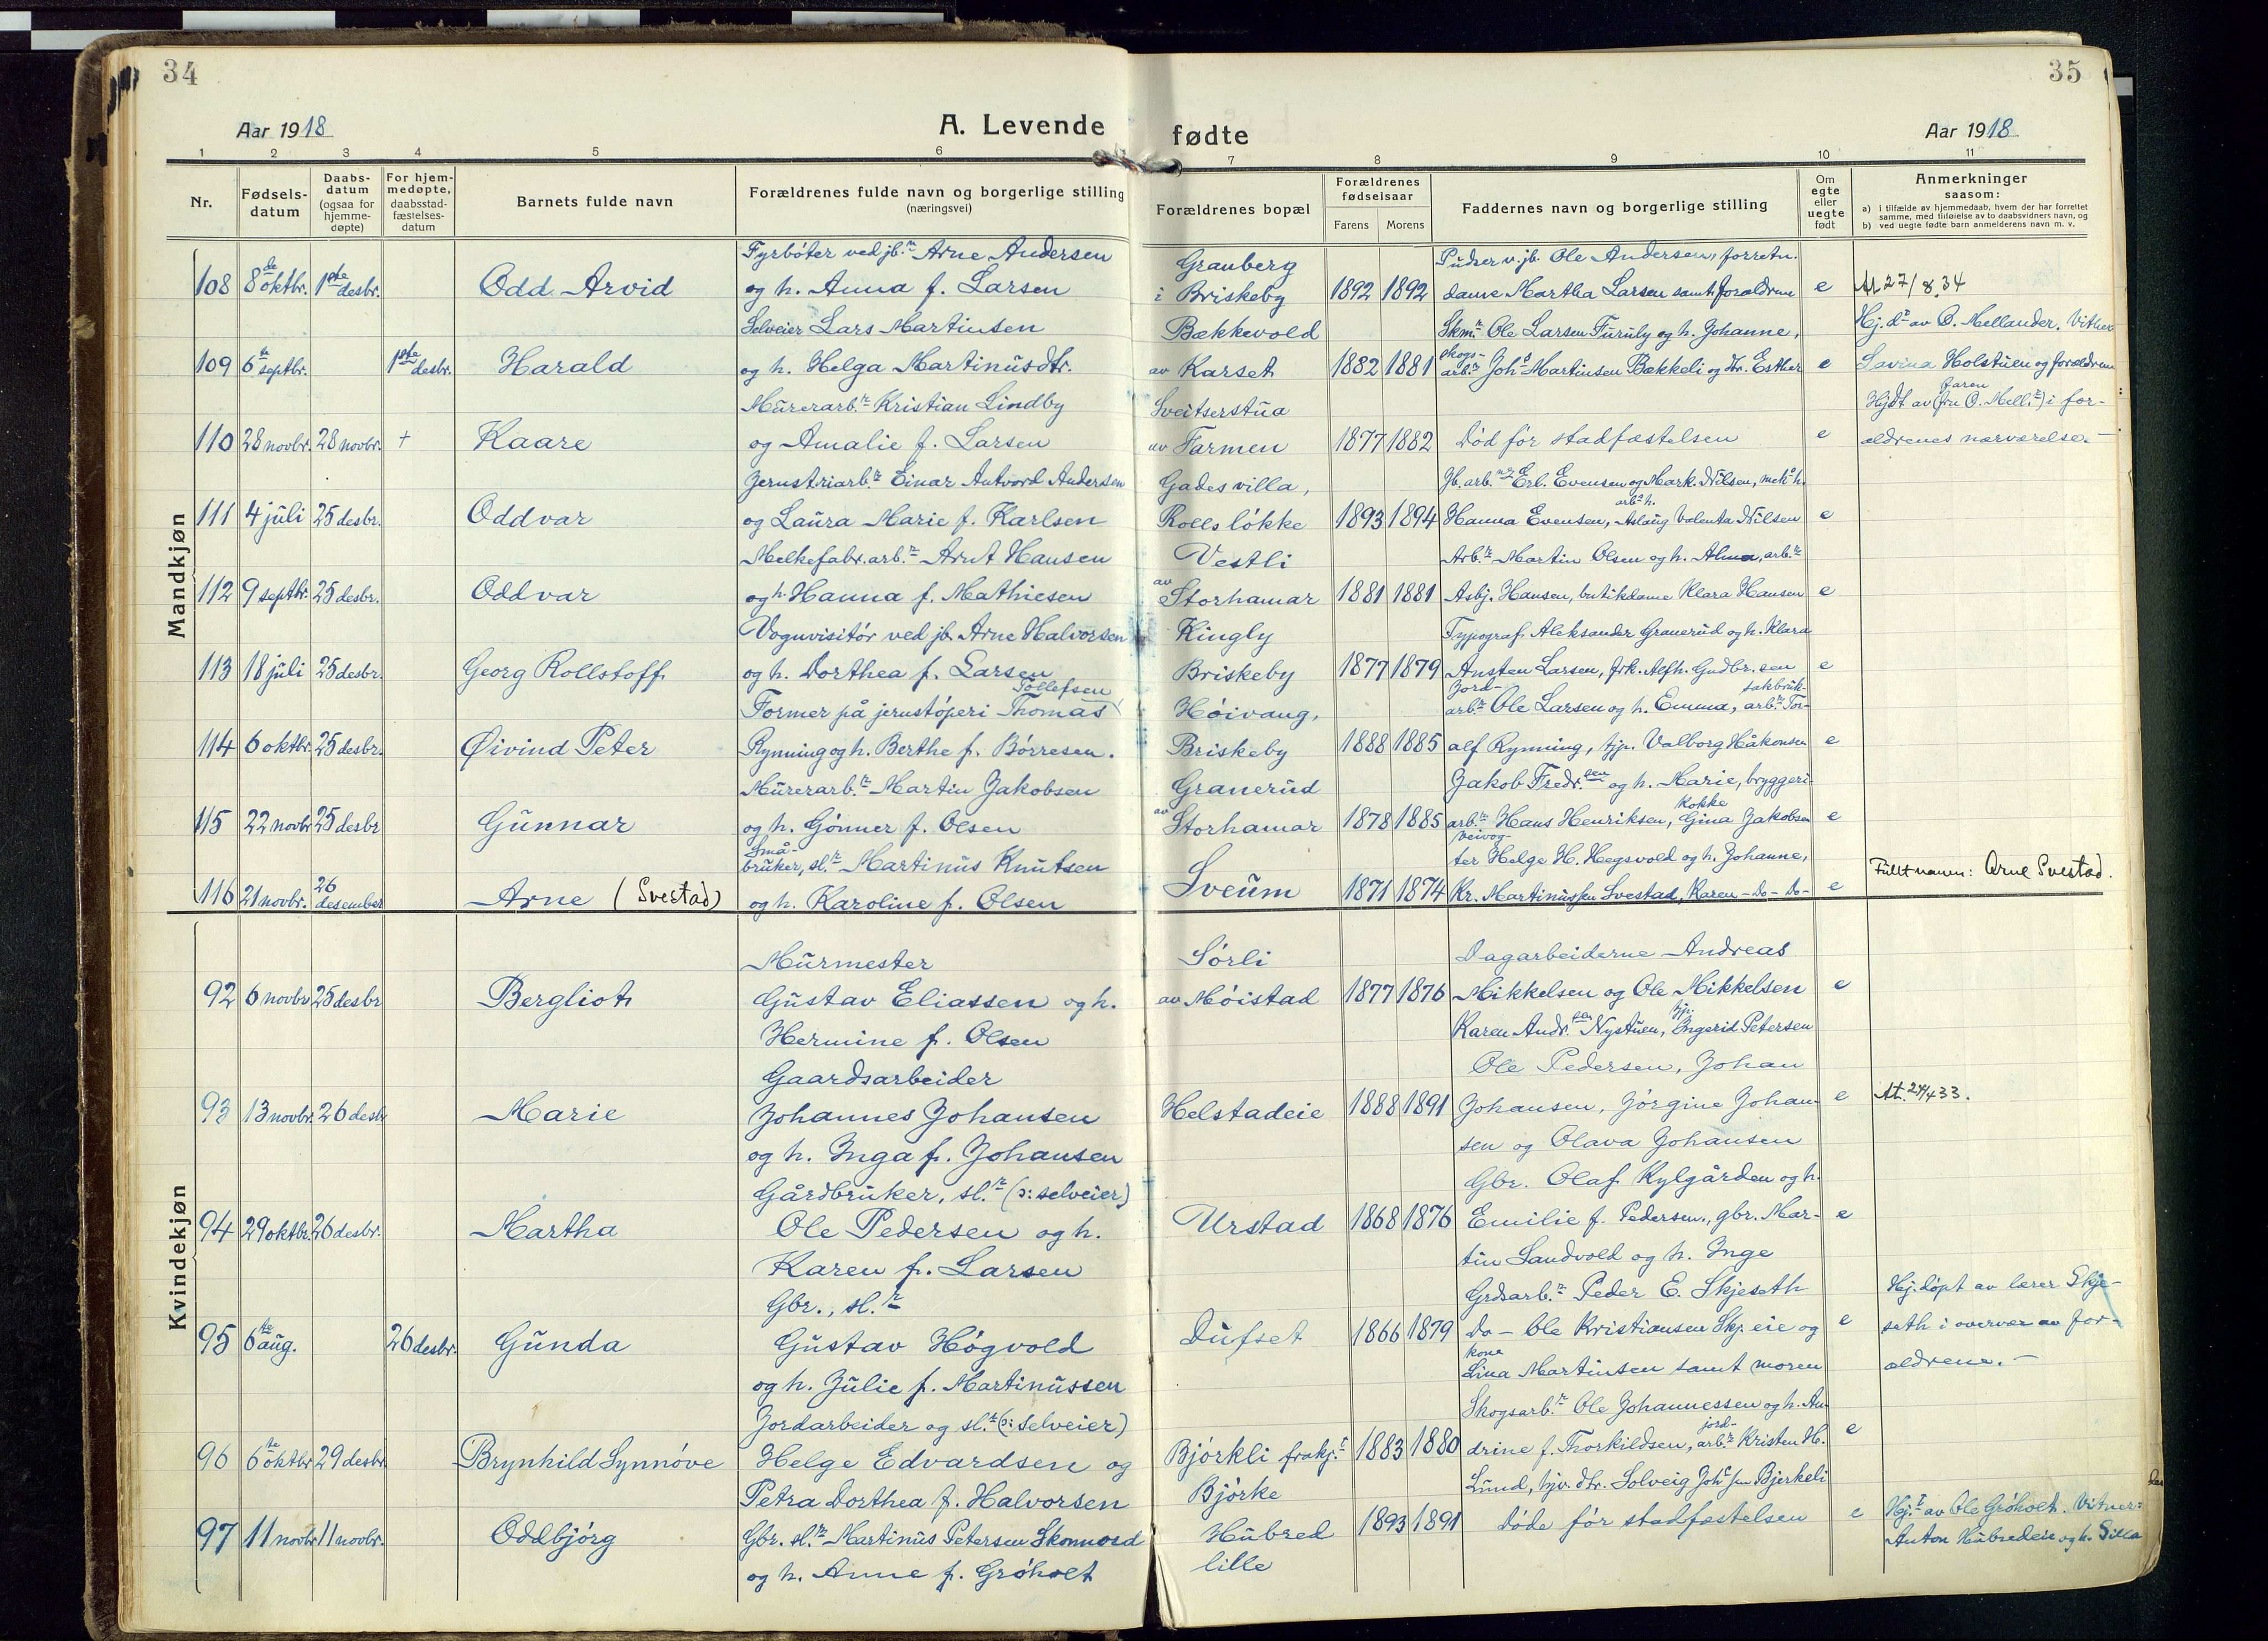 34
35
Aar 1918
A. Levende fødte
Aar 1918
1 2 3 4 5 6 7 8 9 10 11
Nr.
Fødsels-datum
Daabs-datum (ogsaa for hjemme-døpte)
For hjem-medøpte, daabsstad-fæstelses-datum
Barnets fulde navn
Forældrenes fulde navn og borgerlige stilling (næringsvei)
Forældrenes bopæl
Forældrenes fødselsaar
Farens Morens
Faddernes navn og borgerlige stilling
Om egte eller uegte født
Anmerkninger
saasom:
a) i tilfælde av hjemmedaab, hvem der har forrettet samme, med tilføielse av to daabsvidners navn, og
b) ved uegte fødte barn anmelderens navn m. v.
Mandkjøn
108 8de oktbr. 1ste desbr. Odd Arvid
Fyrbøter ved jb.n Arne Andersen
og h. Anna f. Larsen
Granberg
i Briskeby
1892 1892
Pudser v. jb. Ole Andersen, forretn.
dame Martha Larsen samt forældrene
e
At 27/8.34
109 6te septbr. 1ste desbr. Harald
Selveier Lars Martinsen
og h. Helga Martinusdtr.
Bækkevold
av Karset
1882 1881
Skm.r Ole Larsen Furuly og h. Johanne,
skogs-arb.r Joh.s Martinsen Bækkeli og dtr. Esther
e
Hj. d.t av O. Mellander. Vitner
Lovina Holstuen og forældrene
110 28 novbr. 28 novbr. + Kaare
Murerarb.r Kristian Lindby
og Amalie f. Larsen
Sveitserstua
av Farmen
1877 1882
Død før stadfæstelsen
e
Hjdt av faren (fru O. Mell.r) i for-
ældrenes nærværelse.
111 4 juli 25 desbr. Oddvar
Jernstriarb.r Einar Antvord Andersen
og Laura Marie f. Karlsen
Gades villa,
Rolls løkke
1893 1894
Jb. arb. Erl. Evensen og Mark. Nilsen, mek. h.
Hanna Evensen, arb. h. Aslaug Valenta Nilsen
e
112 9 septbr. 25 desbr. Oddvar
Melkefabr. arb.r Arnt Hansen
og h. Hanna f. Mathiesen
Vestli
av Storhamar
1881 1881
Arb.r Martin Olsen og h. Alma, arb.r
Asbj. Hansen, butikdame Klara Hansen
e
113 18 juli 25 desbr. Georg Rollstoff
Vognvisitør ved jb. Arne Halvorsen
og h. Dorthea f. Larsen
Kingly
Briskeby
1877 1879
Typograf Aleksander Granerud og h. Klara
Ansten Larsen, frk. Alfh. Gudbr.sen
e
114 6 oktbr. 25 desbr. Øivind Peter
Former på jernstøperi Thomas Tollefsen
Rynning og h. Berthe f. Børresen.
Høivang,
Briskeby
1888 1885
Jord-arb.r Ole Larsen og h. Emma, sakbruk-arb.r Tor-
alf Rynning, tjp. Valborg Håkonsen
e
115 22 novbr 25 desbr Gunnar
Murerarb.r Martin Jakobsen
og h. Gønner f. Olsen
Granerud
av Storhamar
1878 1885
Jakob Fredr.sen og h. Marie, bryggeri-
arb.r Hans Henriksen, kokke Gina Jakobsen
e
116 21 novbr. 26 desember Arne (Svestad)
Små-bruker, sl.r Martinus Knutsen
og h. Karoline f. Olsen
Sveum
1871 1874
Veivog-ter Helge H. Hegsvold og h. Johanne,
Kr. Martinussen Svestad, Karen -Do- Do-
e
Fullt navn: Arne Svestad.
Kvindekjøn
92 6 novbr 25 desbr Bergliot
Murmester
Gustav Eliassen og h.
Hermine f. Olsen
Sørli
av Møistad
1877 1876
Dagarbeiderne Andreas
Mikkelsen og Ole Mikkelsen
Karen Andr.sen Nystuen, tjp. Ingerid Petersen
e
93 13 novbr. 26 desbr Marie
Gaardsarbeider
Johannes Johansen
og h. Inga f. Johansen
Helstadeie
1888 1891
Ole Pedersen, Johan
Johansen, Jørgine Johan-
sen og Olava Johansen
e
At. 24/4 33.
94 29 oktbr. 26 desbr. Martha
Gårdbruker, sl.r (ɔ: selveier)
Ole Pedersen og h.
Karen f. Larsen
Urstad
1868 1876
Gbr. Olaf Kylgården og h.
Emilie f. Pedersen, gbr. Mar-
tin Sandvold og h. Inge
e
95 6te aug. 26 desbr. Gunda
Gbr., sl.r
Gustav Høgvold
og h. Julie f. Martinussen
Dufset
1866 1879
Grdsarb.r Peder E. Skjeseth
Do - Ole Kristiansen Skj. eie og
kone Lina Martinsen samt moren
e
Hj. døpt av lærer Skje-
seth i overvær av for-
ældrene. -
96 6te oktbr 29 desbr. Brynhild Synnøve
Jordarbeider og sl.r (ɔ: selveier)
Helge Edvardsen og
Petra Dorthea f. Halvorsen
Bjørkli frakj.t
Bjørke
1883 1880
Skogsarb.r Ole Johannessen og h. An-
drine f. Thorkildsen, jord-arb.r Kristen H.
Lund, tjv. dtr. Solveig Joh.sen Bjerkeli
e
97 11 novbr 11 novbr. Oddbjørg
Gbr. sl.r Martinus Petersen Skonnord
og h. Anne f. Grøholt
Hubred
lille
1893 1891
Døde før stadfæstelsen
e
Hj.t av Ole Grøholt. Vitner:
Anton Hubredeie og h. Silla